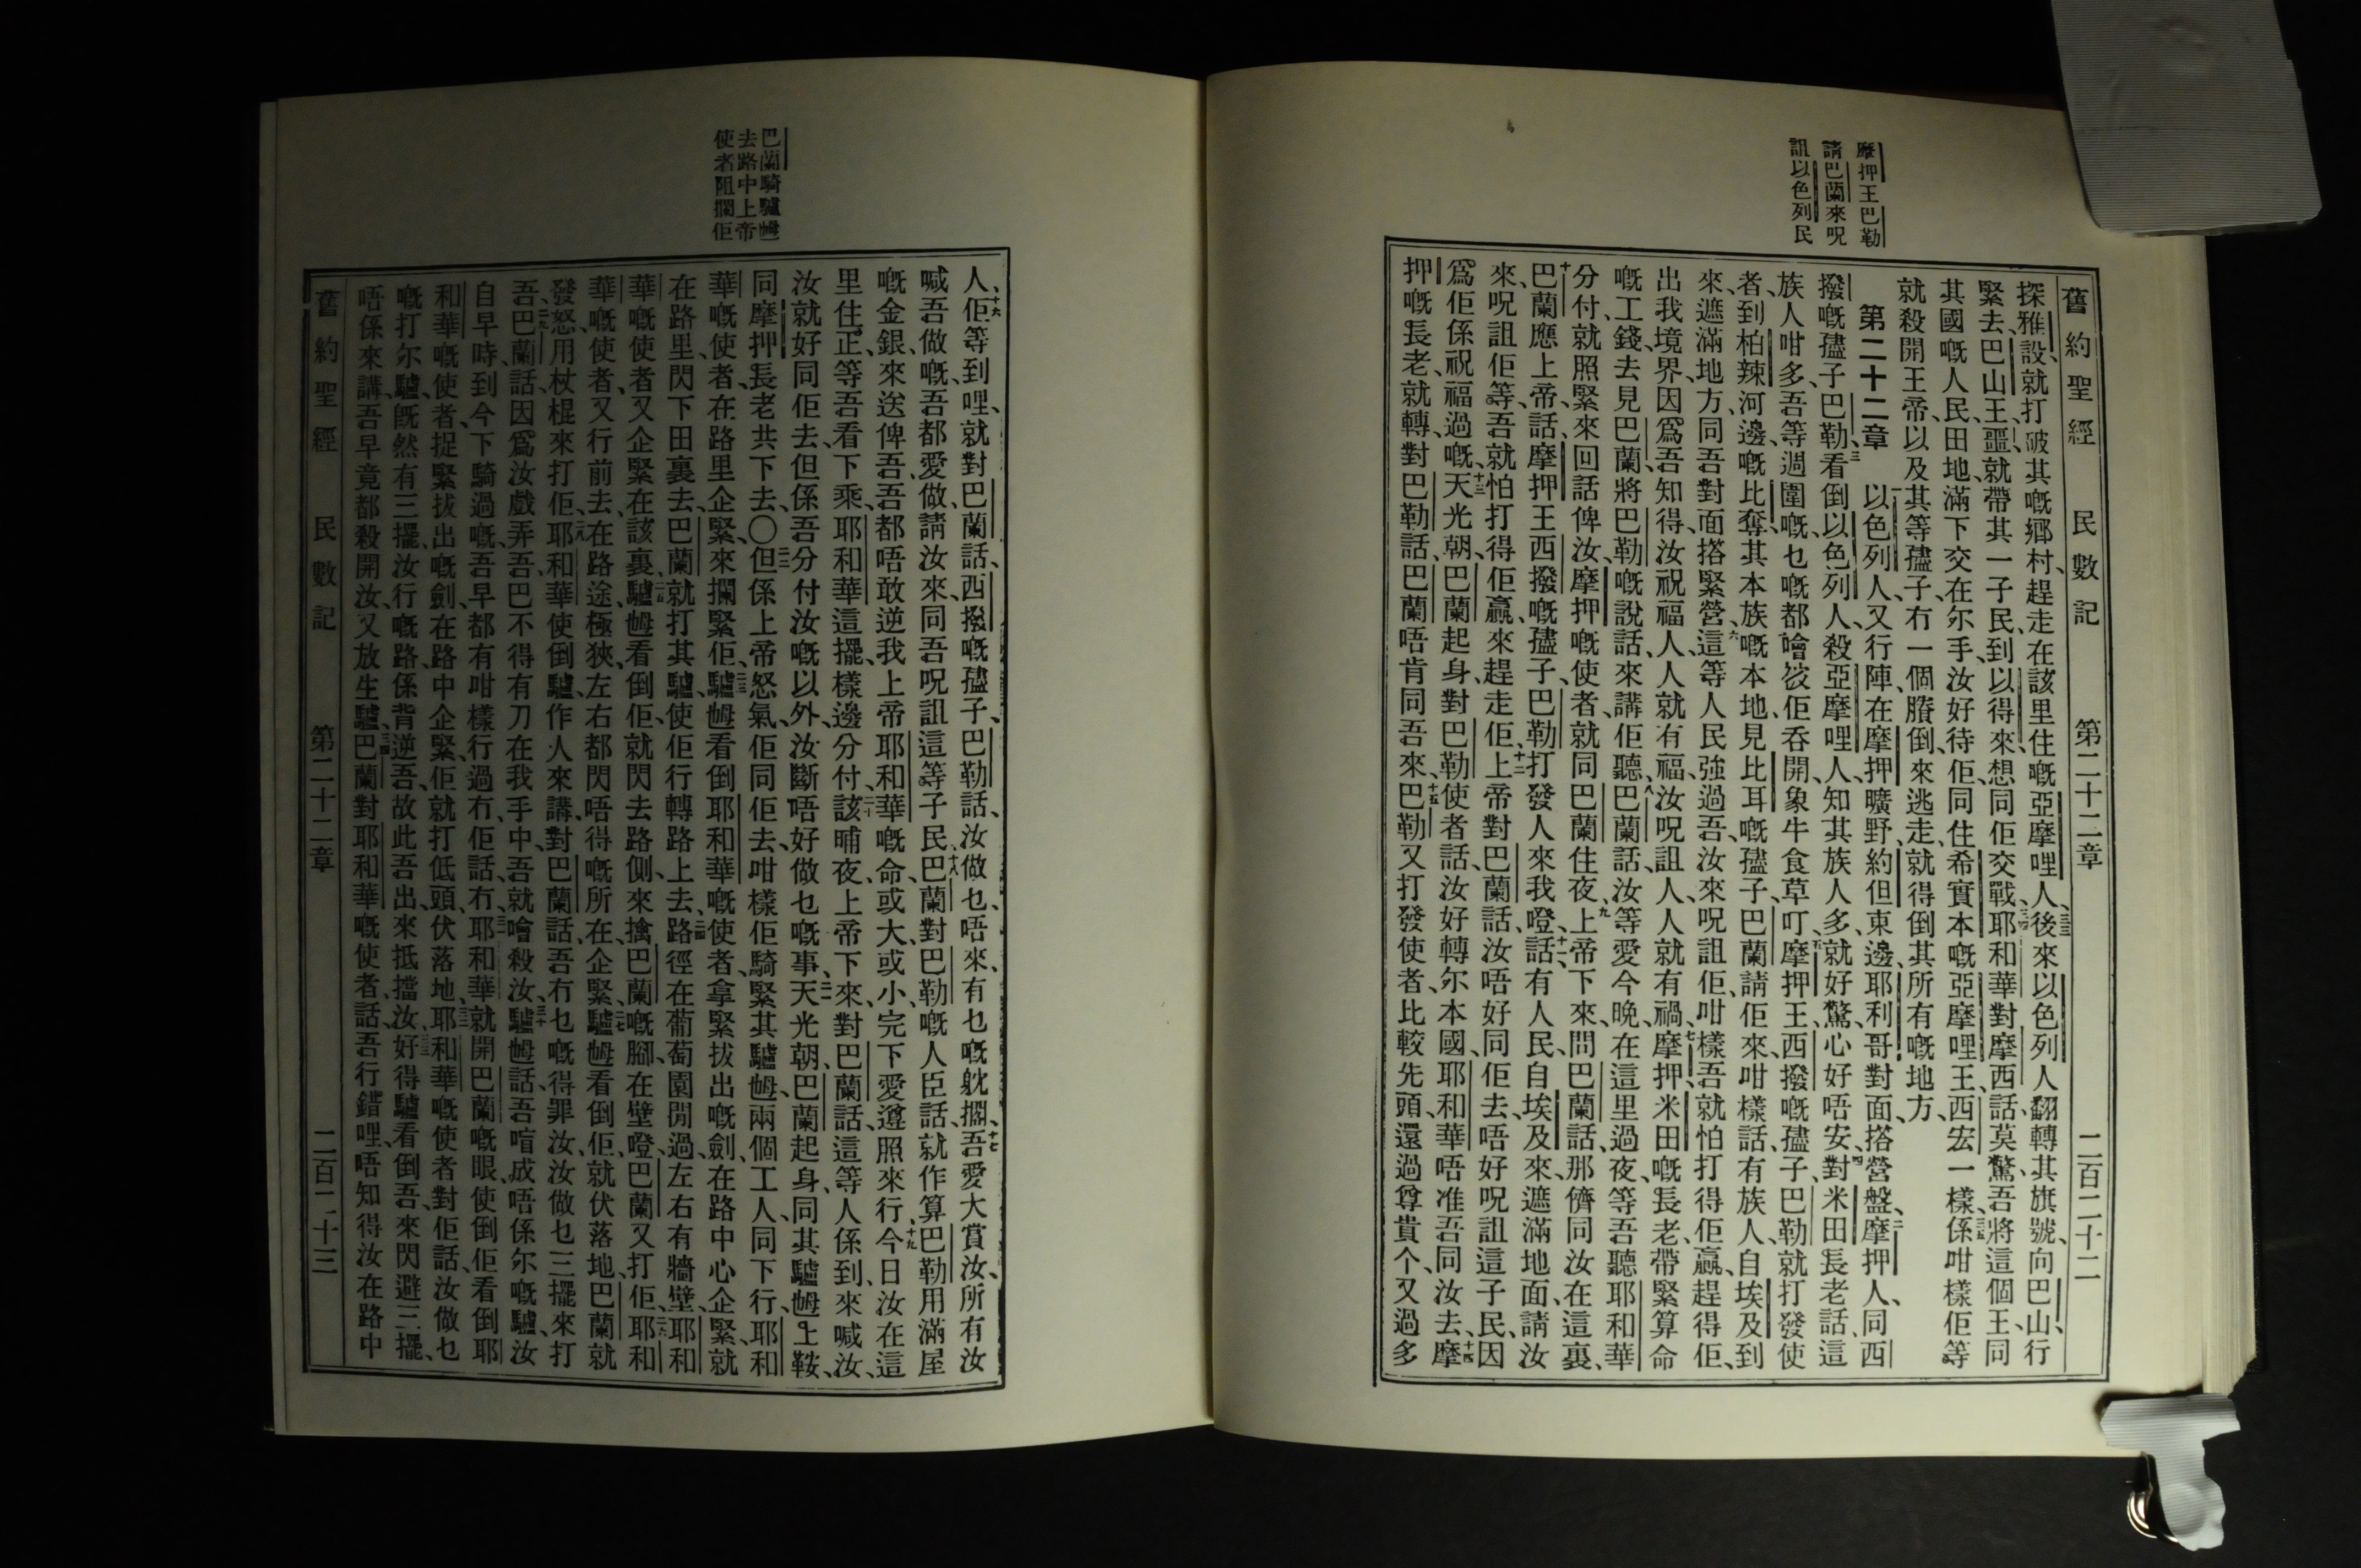 舊約聖經 民數記 第二十二章 二百二十二
摩押王巴勒
請巴蘭來呪
詛以色列民
探雅設、就打破其嘅鄉村、趕走在該里住嘅亞摩哩人、後來以色列人翻轉其旗號、向巴山行
緊去、巴山王噩、就帶其一子民、到以得來、想同佢交戰、耶和華對摩西話、莫驚、吾將這個王、同
其國嘅人民、田地、滿下交在尔手、汝好待佢、同住希實本嘅亞摩哩王、西宏一樣、係咁樣佢等
就殺開王帝、以及其等㜽子、冇一個賸倒、來逃走、就得倒其所有嘅地方、
第二十二章 以色列人、又行陣、在摩押曠野、約但東邊、耶利哥對面、搭營盤、摩押人、同西
撥嘅㜽子巴勒、看倒以色列人、殺亞摩哩人、知其族人多、就好驚、心好唔安、對米田長老話、這
族人咁多、吾等週圍嘅乜嘅都噲俾佢吞開、象牛食草叮、摩押王、西撥嘅㜽子、巴勒就打發使
者、到柏辣河邊、嘅比奪、其本族嘅本地、見比耳嘅㜽子、巴蘭、請佢來、咁樣話、有族人、自埃及到
來、遮滿地方、同吾對面搭緊營、這等人民、強過吾、汝來呪詛佢、咁樣吾就怕打得佢贏、趕得佢、
出我境界、因爲吾知得、汝祝福人、人就有福、汝呪詛人、人就有禍、摩押、米田嘅長老、帶緊算命
嘅工錢、去見巴蘭、將巴勒嘅說話、來講佢聽、巴蘭話、汝等愛今晚、在這里過夜、等吾聽耶和華
分付、就照緊來回話俾汝、摩押嘅使者、就同巴蘭住夜、上帝下來、問巴蘭話、那儕同汝在這裏、
巴蘭應上帝、話、摩押王西撥嘅㜽子、巴勒、打發人來我嶝、話、有人民、自埃及來、遮滿地面、請汝
來、呪詛佢等、吾就怕打得佢贏、來趕走佢、上帝對巴蘭話、汝唔好同佢去、唔好呪詛這子民、因
爲佢係祝福過嘅、天光朝、巴蘭起身、對巴勒使者話、汝好轉尔本國、耶和華唔准吾同汝去、摩
押嘅長老、就轉、對巴勒話、巴蘭唔肯同吾來、巴勒又打發使者、比較先頭、還過尊貴个、又過多
人、佢等到哩、就對巴蘭話、西撥嘅㜽子、巴勒話、汝做乜唔來、有乜嘅躭擱、吾愛大賞汝、所有汝
喊吾做嘅、吾都愛做、請汝來、同吾呪詛這等子民、巴蘭對巴勒嘅人臣話、就作算巴勒用滿屋
嘅金銀、來送俾吾、吾都唔敢逆我上帝耶和華嘅命、或大、或小、完下愛遵照來行、今日汝在這
里住、正等吾看下乘、耶和華這擺、樣邊分付、該晡夜、上帝下來、對巴蘭話、這等人係到來喊汝、
汝就好同佢去、但係吾分付汝嘅以外、汝斷唔好做乜嘅事、天光朝、巴蘭起身、同其驢㜷上鞍、
同摩押長老共下去、〇但係上帝怒氣、佢同佢去、咁樣佢騎緊其驢㜷、兩個工人同下行、耶和
華嘅使者、在路里企緊、來攔緊佢、驢㜷看倒耶和華嘅使者、拿緊拔出嘅劍、在路中心企緊、就
在路里閃下田裏去、巴蘭就打其驢、使佢行轉路上去、路徑在葡萄園閒過、左右有牆壁、耶和
華嘅使者又企緊在該裏、驢㜷看倒佢、就閃去路側、來擒巴蘭嘅腳、在壁嶝、巴蘭又打佢、耶和
華嘅使者、又行前去、在路途極狹、左右都閃唔得嘅所在企緊、驢㜷看倒佢、就伏落地、巴蘭就
發怒、用杖棍來打佢、耶和華使倒驢、作人來講、對巴蘭話、吾冇乜嘅得罪汝、汝做乜三擺來打
吾、巴蘭話、因爲汝戲弄吾、吾巴不得有刀在我手中、吾就噲殺汝、驢㜷話、吾唔成唔係尔嘅驢、汝
自早時、到今下騎過嘅、吾早都有咁樣行過冇、佢話冇、耶和華就開巴蘭嘅眼、使倒佢看倒耶
和華嘅使者、捉緊拔出嘅劍、在路中企緊、佢就打低頭、伏落地、耶和華嘅使者對佢話、汝做乜
嘅打尔驢、旣然有三擺、汝行嘅路、係背逆吾、故此吾出來抵擋汝、好得驢看倒吾、來閃避三擺、
唔係來講、吾早竟都殺開汝、又放生驢、巴蘭對耶和華嘅使者話、吾行錯哩、唔知得汝在路中
巴蘭騎驢㜷
去路中上帝
使者阻攔佢
舊約聖經 民數記 第二十二章 二百二十三